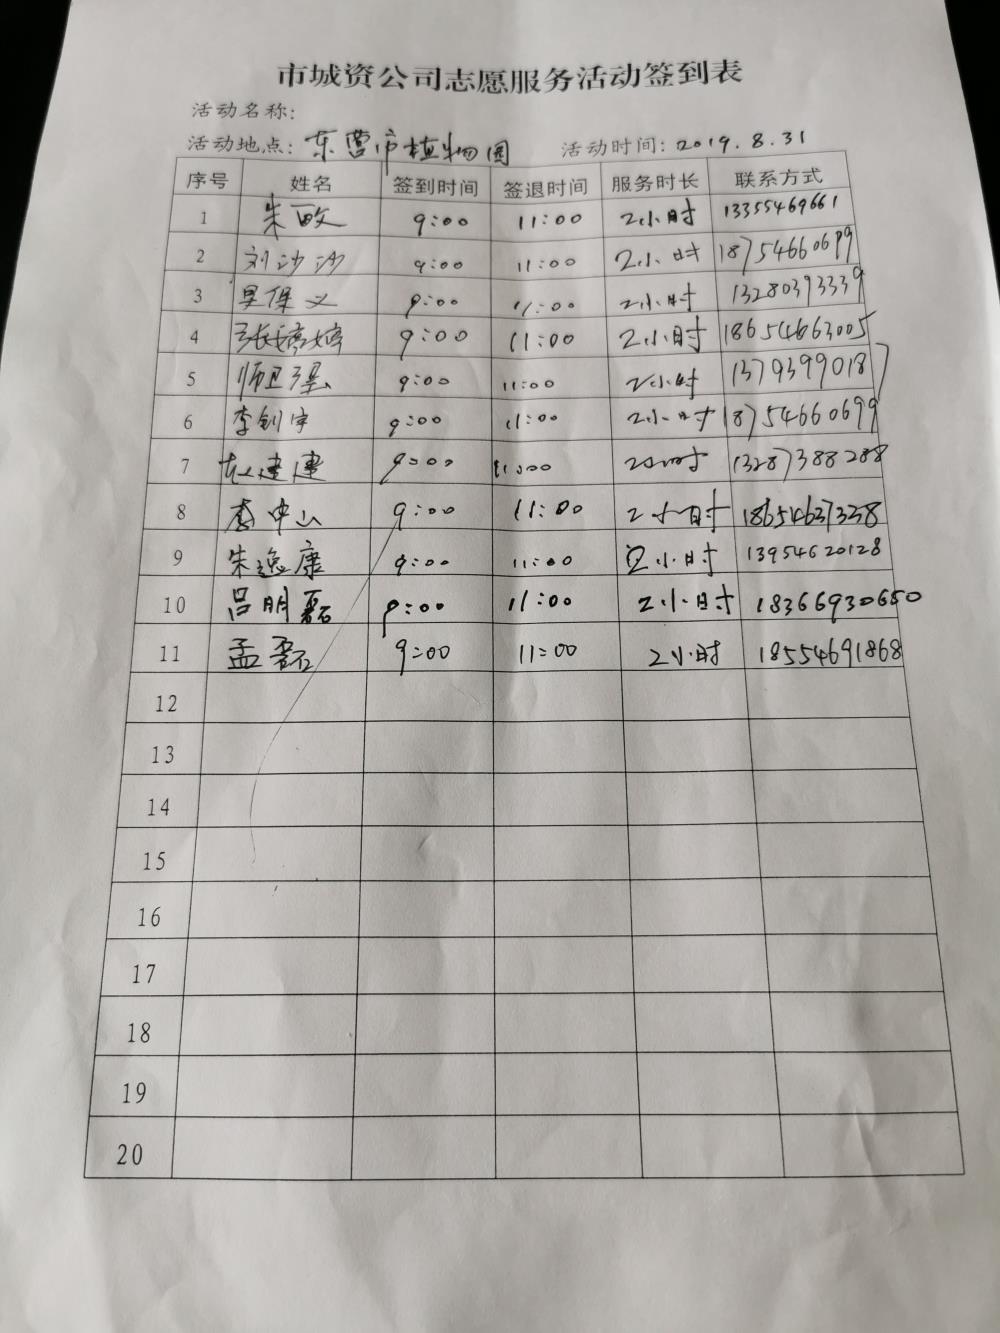 市城资公司志愿服务活动签到表
活动名称:
活动地点: 东营市植物园 活动时间: 2019.8.31
序号 姓名 签到时间 签退时间 服务时长 联系方式
1 朱 9:00 11:00 2小时 13355469661
2 刘沙沙 9:00 11:00 2小时 18754660699
3 吴保义 9:00 11:00 2小时 13280393339
4 张婷婷 9:00 11:00 2小时 18654663005
5 师卫强 9:00 11:00 2小时 13793990187
6 李钊宇 9:00 11:00 2小时 18754660699
7 建建 9:00 11:00 2小时 13287388288
8 李中山 9:00 11:00 2小时 18654637338
9 朱逸康 9:00 11:00 2小时 13954620128
10 吕明磊 9:00 11:00 2小时 18366930650
11 孟磊 9:00 11:00 2小时 18554691868
12
13
14
15
16
17
18
19
20